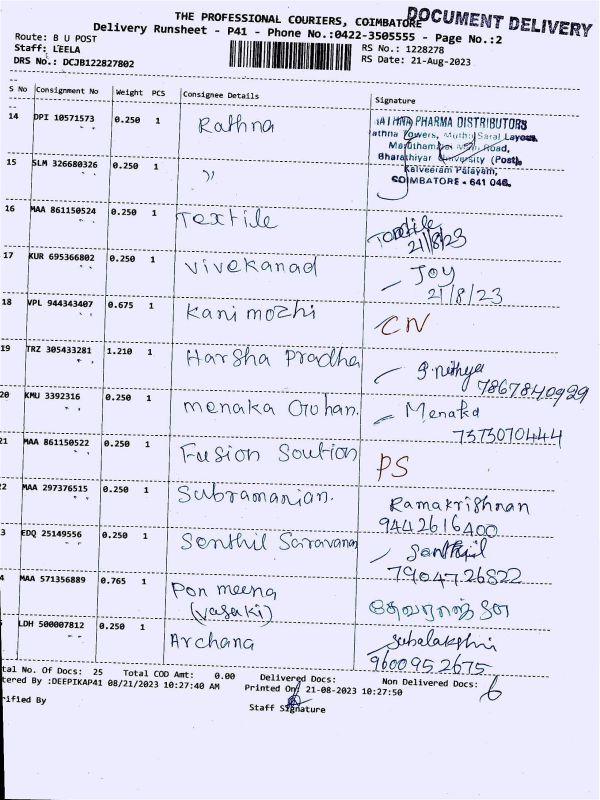 THE PROFESSIONAL COURIERS, COIMBATORE
DOCUMENT DELIVERY
Delivery Runsheet - P41 - Phone No.:0422-3505555 - Page No.:2
Route: B U POST
RS No.: 1228278
Staff: LEELA
RS Date: 21-Aug-2023
DRS No.: DCJB122827802
S No Consignment No Weight PCS Consignee Details Signature
14 DPI 10571573 0.250 1 Rathna
RATHNA PHARMA DISTRIBUTORS
athna Towers, Muthu Saral Layout,
Road,
Bharathiyar University (Post),
Kalveeram Palayam,
COIMBATORE - 641 046.
15 SLM 326680326 0.250 1 "
16 MAA 861150524 0.250 1 Textile Textile
21/8/23
17 KUR 695366802 0.250 1 Vivekanad Joy
21/8/23
18 VPL 944343407 0.675 1 Kani mozhi CN
19 TRZ 305433281 1.210 1 Harsha Pradha P. nithya
7867840929
20 KMU 3392316 0.250 1 menaka Guhan. Menaka
7373070444
21 MAA 861150522 0.250 1 Fusion Soution PS
22 MAA 297376515 0.250 1 Subramanian. Ramakrishnan
9442616400
3 EDQ 25149556 0.250 1 Senthil Saravanan Senthil
7904726822
4 MAA 571356889 0.765 1 Pon meena
(vasaki)
LDH 500007812 0.250 1 Archana Subalakshmi
9600952675
tal No. Of Docs: 25 Total COD Amt: 0.00 Delivered Docs: Non Delivered Docs: 6
tered By :DEEPIKAP41 08/21/2023 10:27:40 AM Printed On: 21-08-2023 10:27:50
rified By Staff Signature